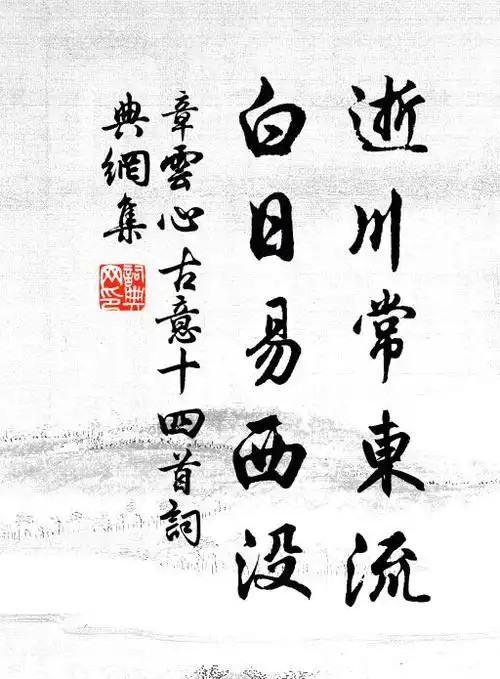 逝川常東流
白日易西没
章雲心古意十四首詞
典網集
詞典網印